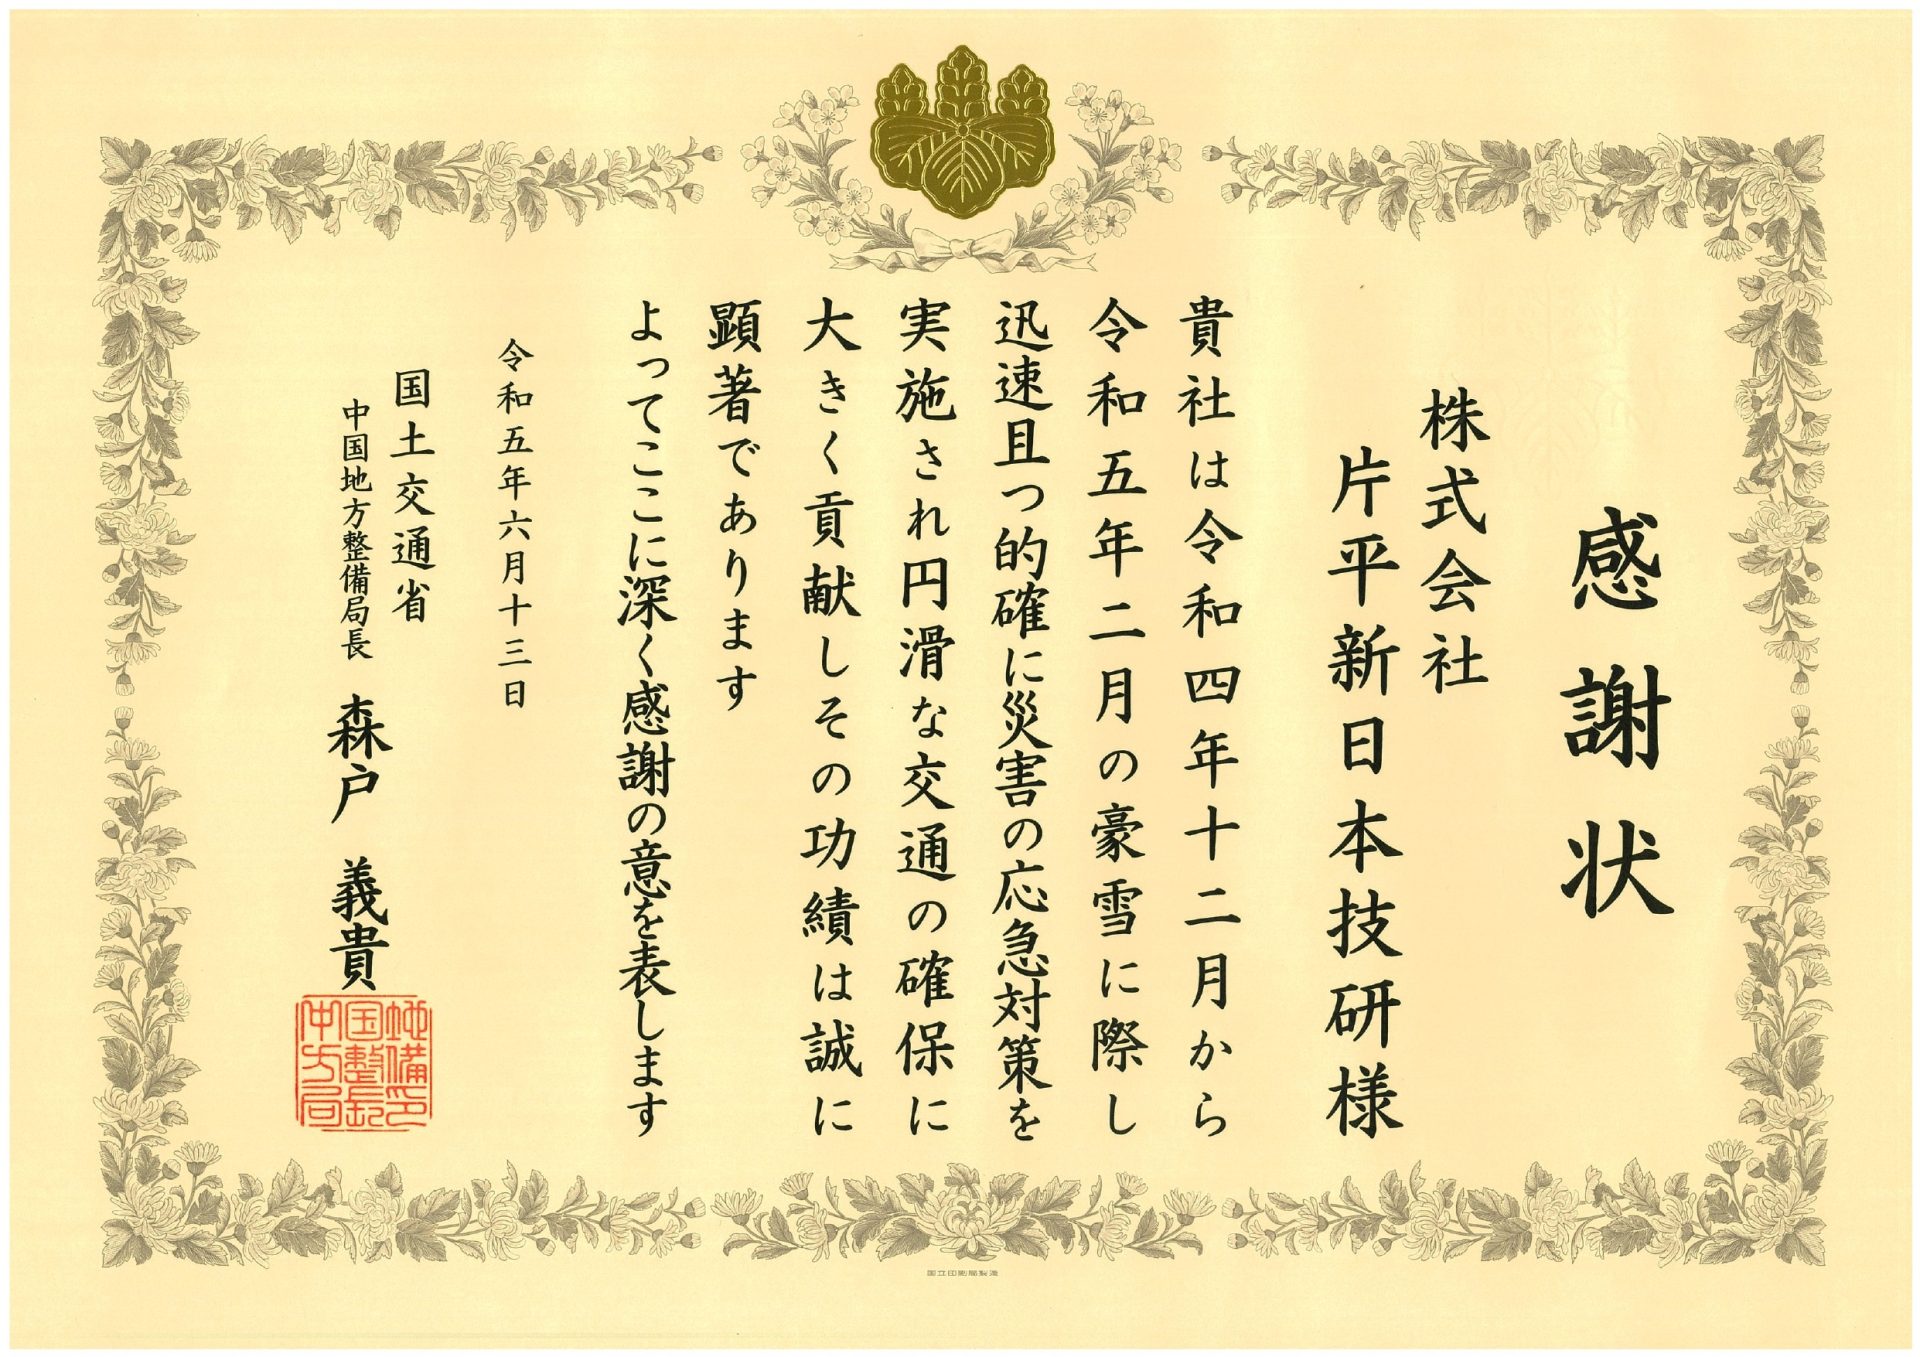 感謝状
株式会社
片平新日本技研様
貴社は令和四年十二月から
令和五年二月の豪雪に際し
迅速且つ的確に災害の応急対策を
実施され円滑な交通の確保に
大きく貢献しその功績は誠に
顕著であります
よってここに深く感謝の意を表します
令和五年六月十三日
国土交通省
中国地方整備局長 森戸 義貴
中国地方整備局長印
国立印刷局製造